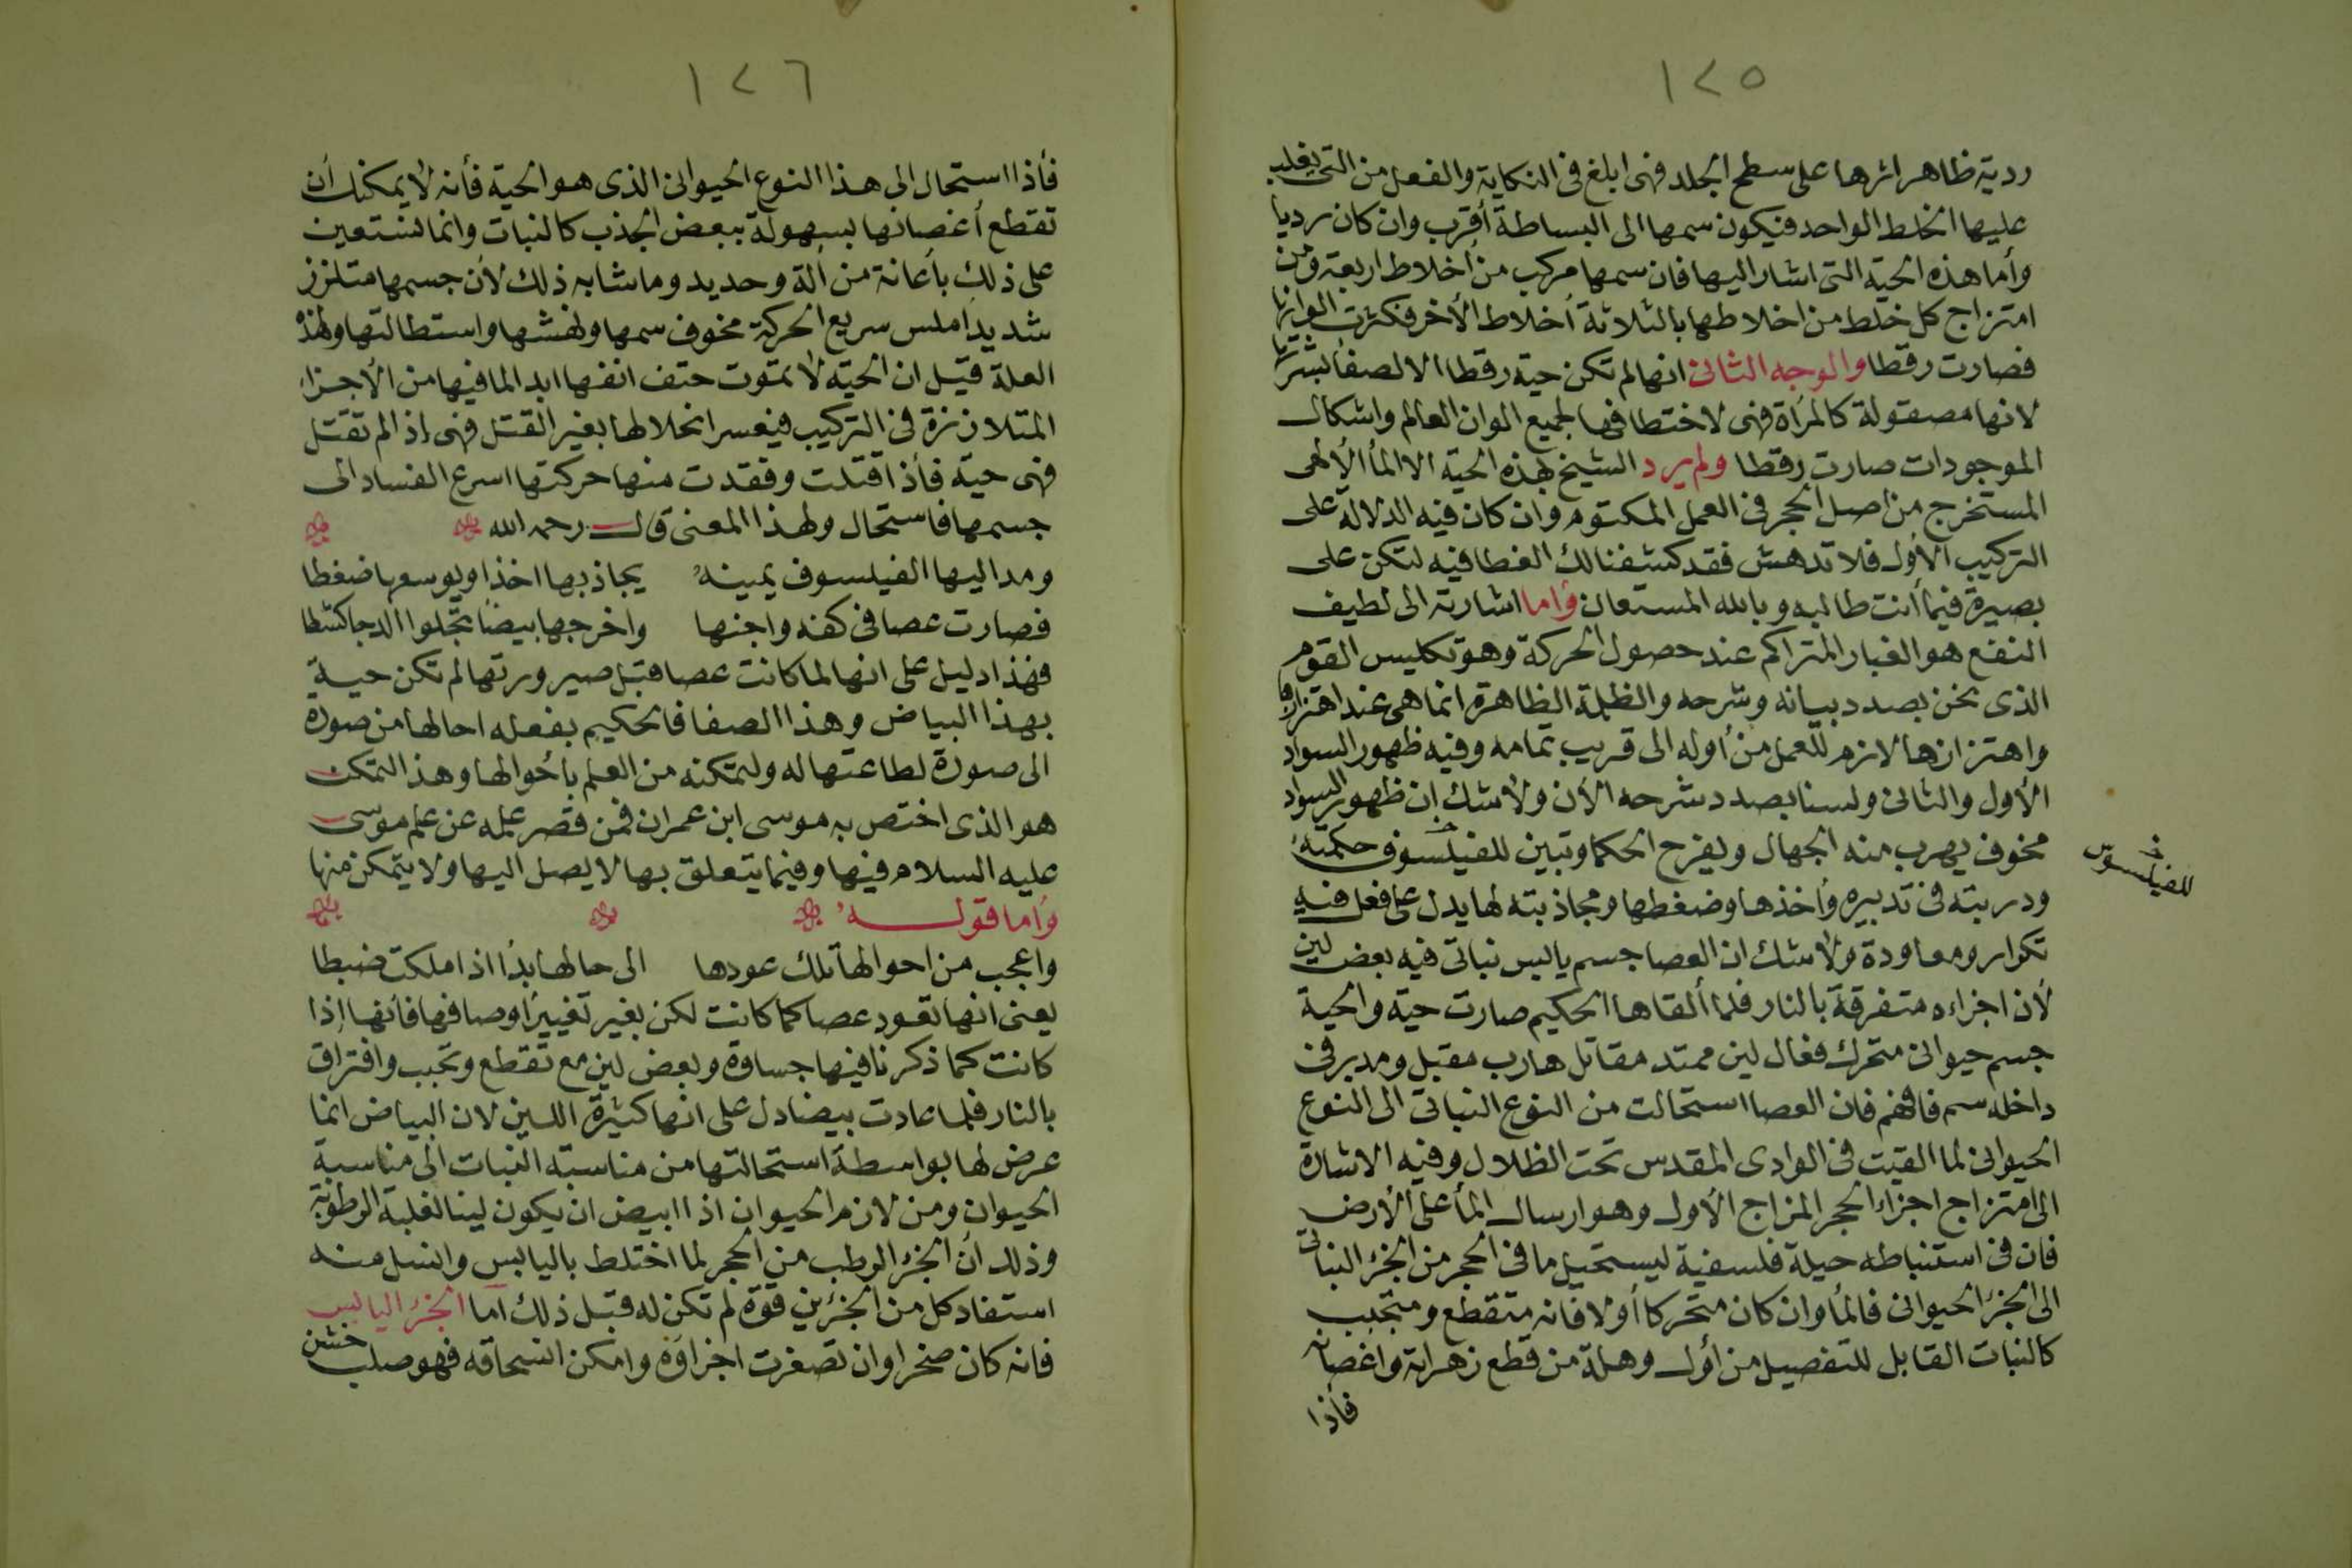 ١٢٥
ردية ظاهر اثرها على سطح الجلد فهى ابلغ فى النكاية والفعل من التى يغلب
عليها الخلط الواحد فيكون سمها الى البساطة أقرب وان كان رديا
وأما هذه الحية التى اشار اليها فان سمها مركب من أخلاط اربعة ومن
امتزاج كل خلط من اخلاطها بالثلاثة أخلاط الأخر فكثرت الوانها
فصارت رقطا والوجه الثانى انها لم تكن حية رقطا الا لصفأ بشرتها
لانها مصقولة كالمرأة فهى لاختطافها لجميع الوان العالم واشكال
الموجودات صارت رقطا ولم يرد الشيخ بهذه الحية الا المأ الألهى
المستخرج من اصل الحجر فى العمل المكتوم وان كان فيه الدلالة على
التركيب الأول فلا تدهش فقد كشفنا لك الغطا فيه لتكن على
بصيرة فيما أنت طالبه وبالله المستعان وأما اشارته الى لطيف
النقع هو الغبار المتراكم عند حصول الحركة وهو تكليس القوم
الذى نحن بصدد بيانه وشرحه والظلمة الظاهرة انما هى عند اهتزازها
واهتزازها لازم للعمل من أوله الى قريب تمامه وفيه ظهور السواد
الأول والثانى ولسنا بصدد شرحه الأن ولا شك ان ظهور السواد
مخوف يهرب منه الجهال ويفرح الحكما وتبين للفيلسوف حكمته
خ للفيلسوف
ودربته فى تدبيره وأخذها وضغطها ومجاذبته لها يدل على فعل فيه
تكرار ومعاودة ولا شك ان العصا جسم يابس نباتى فيه بعض لين
لأن اجزاءه متفرقة بالنار فلما ألقاها الحكيم صارت حية والحية
جسم حيوانى متحرك فعال لين ممتد مقاتل هارب مقبل ومدبر فى
داخله سم فافهم فان العصا استحالت من النوع النباتى الى النوع
الحيوانى لما القيت فى الوادى المقدس تحت الظلال وفيه الاشارة
الى امتزاج اجزاء الحجر المزاج الأول وهو ارسال المأ على الأرض
فان فى استنباطه حيلة فلسفية ليستحيل ما فى الحجر من الجزء النباتى
الى الجزء الحيوانى فالمأ وان كان متحركا أولا فانه متقطع ومتجبب
كالنبات القابل للتفصيل من أول وهلة من قطع زهراته واغصانه
فأذا
١٢٦
فأذا استحال الى هذا النوع الحيوانى الذى هو الحية فأنه لا يمكنك أن
تقطع أغصانها بسهولة ببعض الجذب كالنبات وانما نستعين
على ذلك بأعانة من ألة وحديد وما شابه ذلك لأن جسمها متلزز
شديد املس سريع الحركة مخوف سمها ونهشها واستطالتها ولهذه
العلة قيل ان الحية لا تموت حتف انفها ابدا لما فيها من الأجزاء
المتلاززة فى التركيب فيعسر انحلالها بغير القتل فهى إذا لم تقتل
فهى حية فأذا قتلت وفقدت منها حركتها اسرع الفساد الى
جسمها فاستحال ولهذا المعنى قال رحمه الله
ومد اليها الفيلسوف يمينه يجاذبها اخذا ويوسعها ضغطا
فصارت عصا فى كفه واجنها واخرجها بيضأ تجلوا الدجا كشطا
فهذا دليل على انها لما كانت عصا قبل صيرورتها لم تكن حية
بهذا البياض وهذا الصفا فالحكيم بفعله احالها من صورة
الى صورة لطاعتها له ولتمكنه من العلم بأحوالها وهذا التمكن
هو الذى اختص به موسى ابن عمران فمن قصر علمه عن علم موسى
عليه السلام فيها وفيما يتعلق بها لا يصل اليها ولا يتمكن منها
وأما قوله
واعجب من احوالها تلك عودها الى حالها بدأ اذا ملكت ضبطا
يعنى انها تعود عصا كما كانت لكن بغير تغيير أوصافها فأنها اذا
كانت كما ذكرنا فيها جساوة وبعض لين مع تقطع وتجبب وافتراق
بالنار فلما عادت بيضا دل على انها كثيرة اللين لان البياض انما
عرض لها بواسطة استحالتها من مناسبة النبات الى مناسبة
الحيوان ومن لازم الحيوان اذا ابيض ان يكون لينا لغلبة الرطوبة
وذلك ان الجزء الرطب من الحجر لما اختلط باليابس وانسل منه
استفاد كل من الجزئين قوة لم تكن له قبل ذلك اما الجزء اليابس
فانه كان صخرا وان تصغرت اجزاؤه وامكن انسحاقه فهو صلب خشن